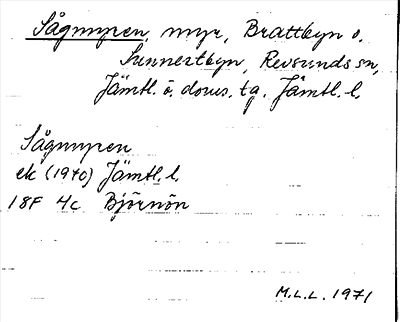 Sågmyren, myr, Brattbyn o.
Sunnertbyn, Revsunds sn,
Jämtl. ö. doms. tg. Jämtl. l.
Sågmyren
ek (1940) Jämtl. l.
18F 4c Björnön
M.L.L. 1971